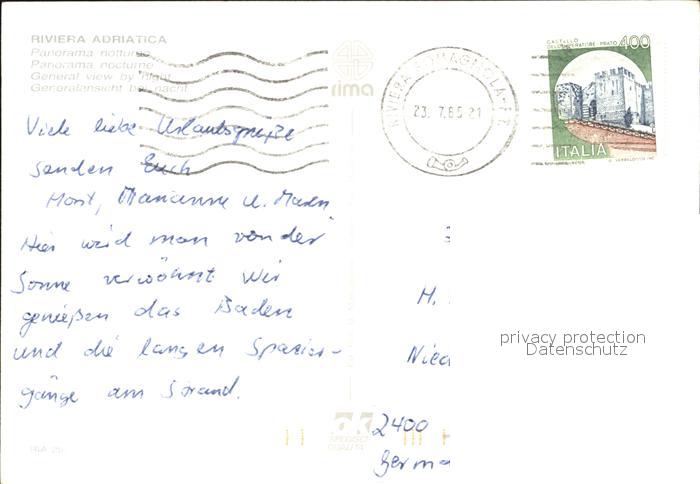 RIVIERA ADRIATICA
Panorama notturno
Panorama nocturne
General view by night
Generalansicht bei nacht
rima
RIVIERA ROMAGNOLA
23. 7.85 21
CASTELLO
DELL'IMPERATORE PRATO 400
ITALIA
Viele liebe Urlaubsgrüße
senden Euch
Horst, Marianne u. Maren
Hier wird man von der
Sonne verwöhnt. Wir
genießen das Baden
und die langen Spazier-
gänge am Strand.
H.
2400
Germa
privacy protection
Datenschutz
ok